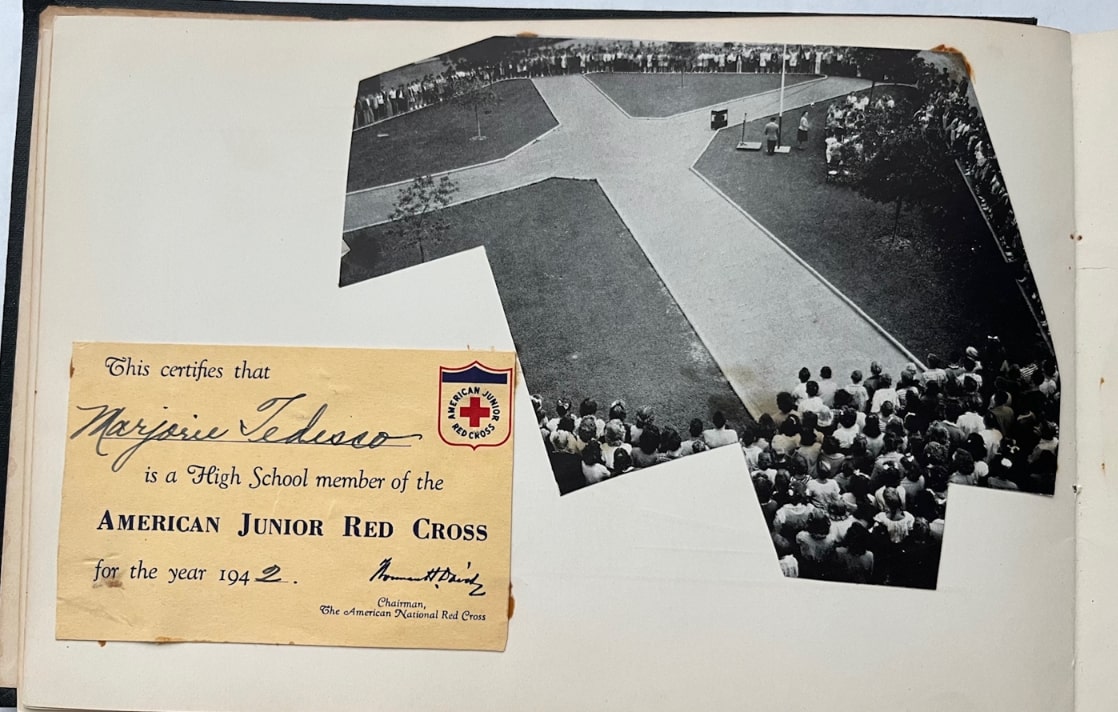 This certifies that
Marjorie Tedesco
is a High School member of the
AMERICAN JUNIOR RED CROSS
for the year 1942.
Norman H. Davis
Chairman,
The American National Red Cross
AMERICAN JUNIOR
RED CROSS